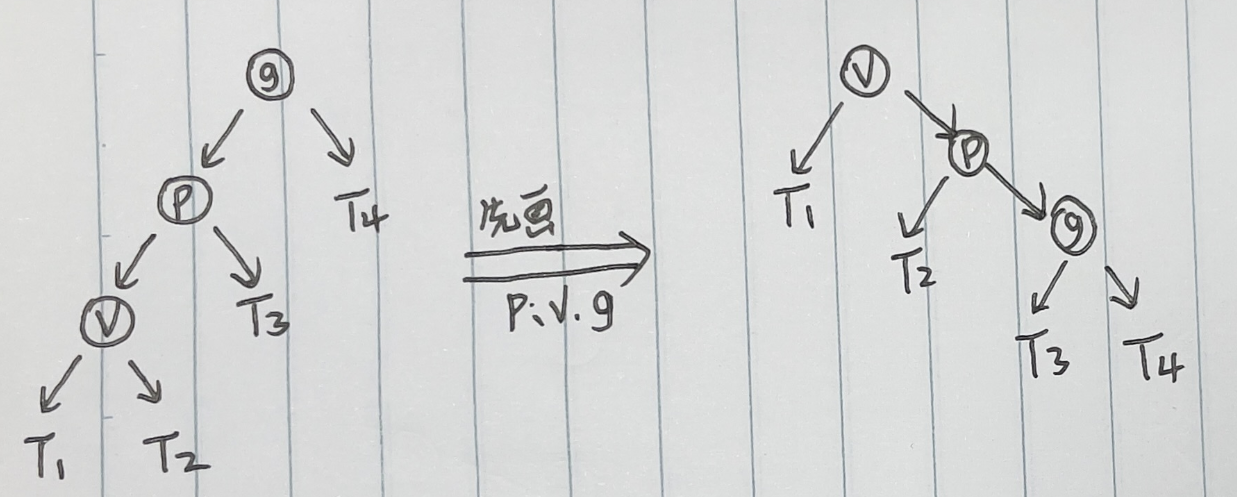 g
P
T4
V
T3
T1 T2
先画
P: V. g
V
T1
P
T2
g
T3 T4